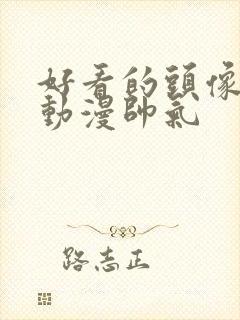 好看的頭像
動漫帥氣
路志正